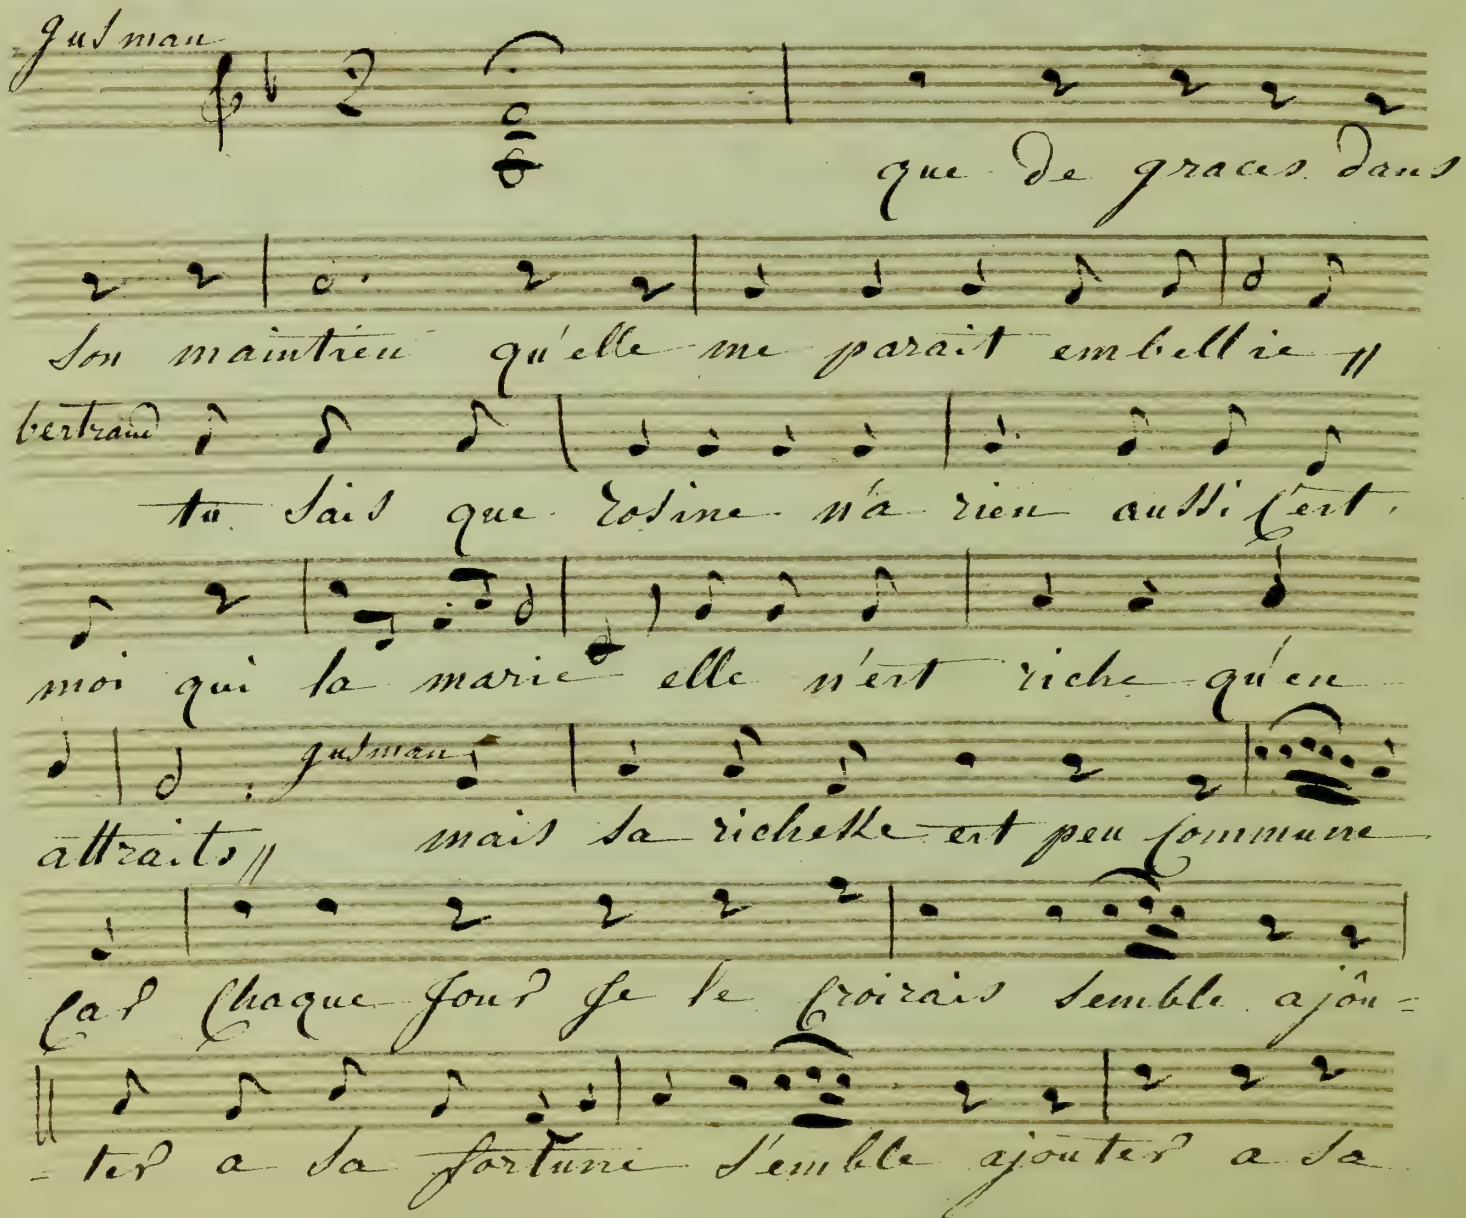 gusman
que de graces dans
son maintien qu'elle me parait embellie //
bertrand
tu sais que rosine n'a rien aussi c'est
moi qui la marie elle n'est riche qu'en
gusman
attraits // mais sa richesse est peu commune
car chaque jour je le croirais semble ajoû=
-ter a sa fortune semble ajouter a sa